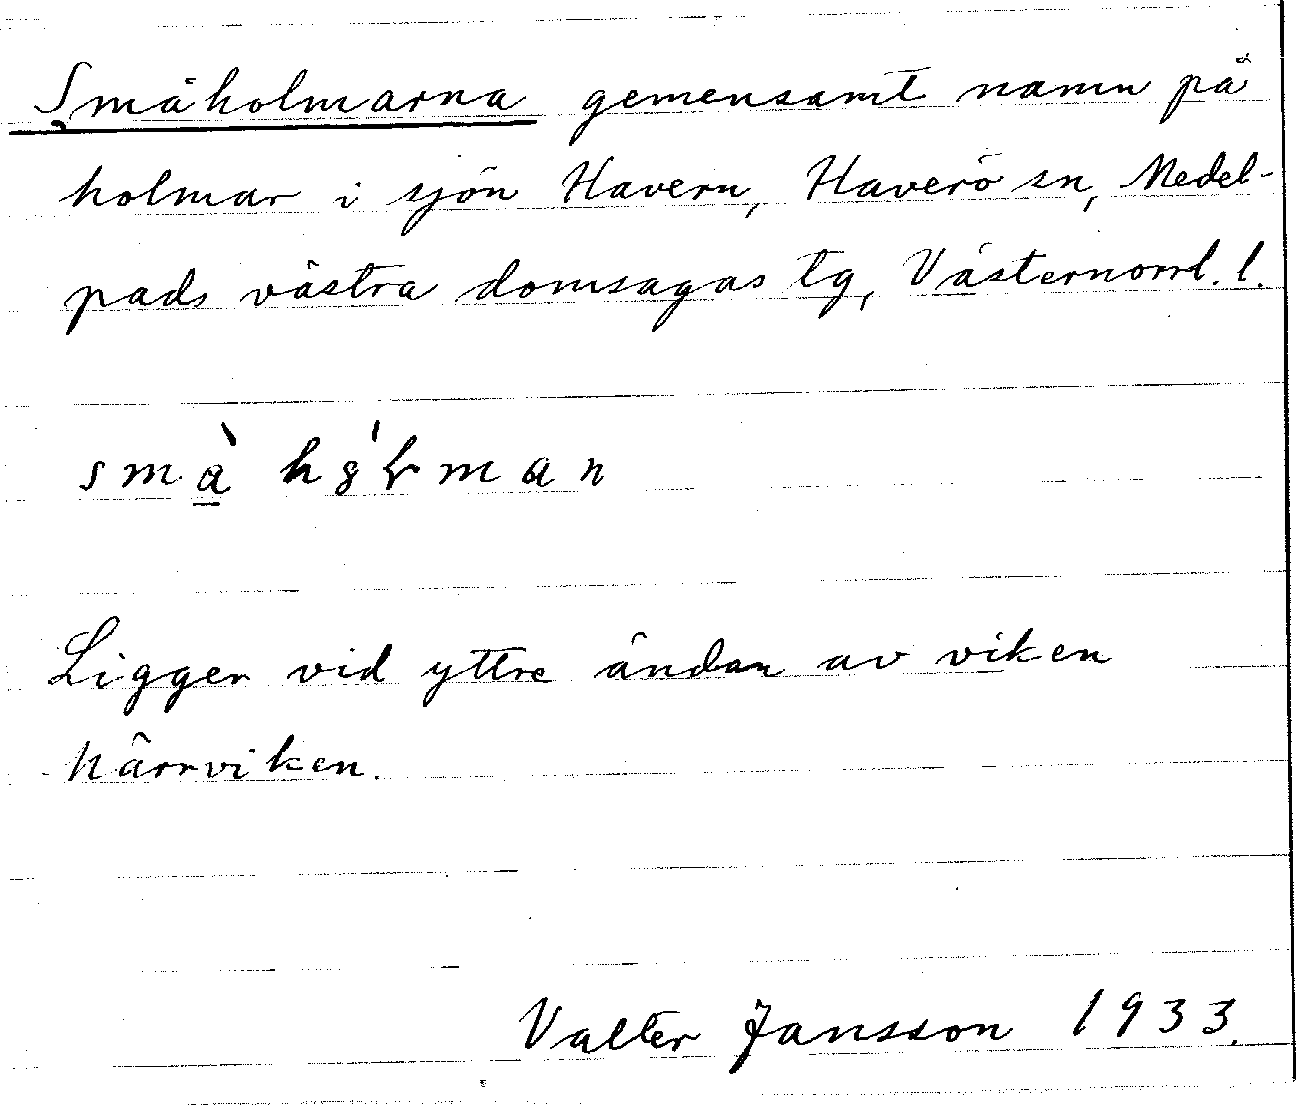 Småholmarna gemensamt namn på
holmar i sjön Havern, Haverö sn, Medel-
pads västra domsagas tg, Västernorrl. l.
små
Ligger vid yttre ändan av viken
Närrviken.
Valter Jansson 1933.